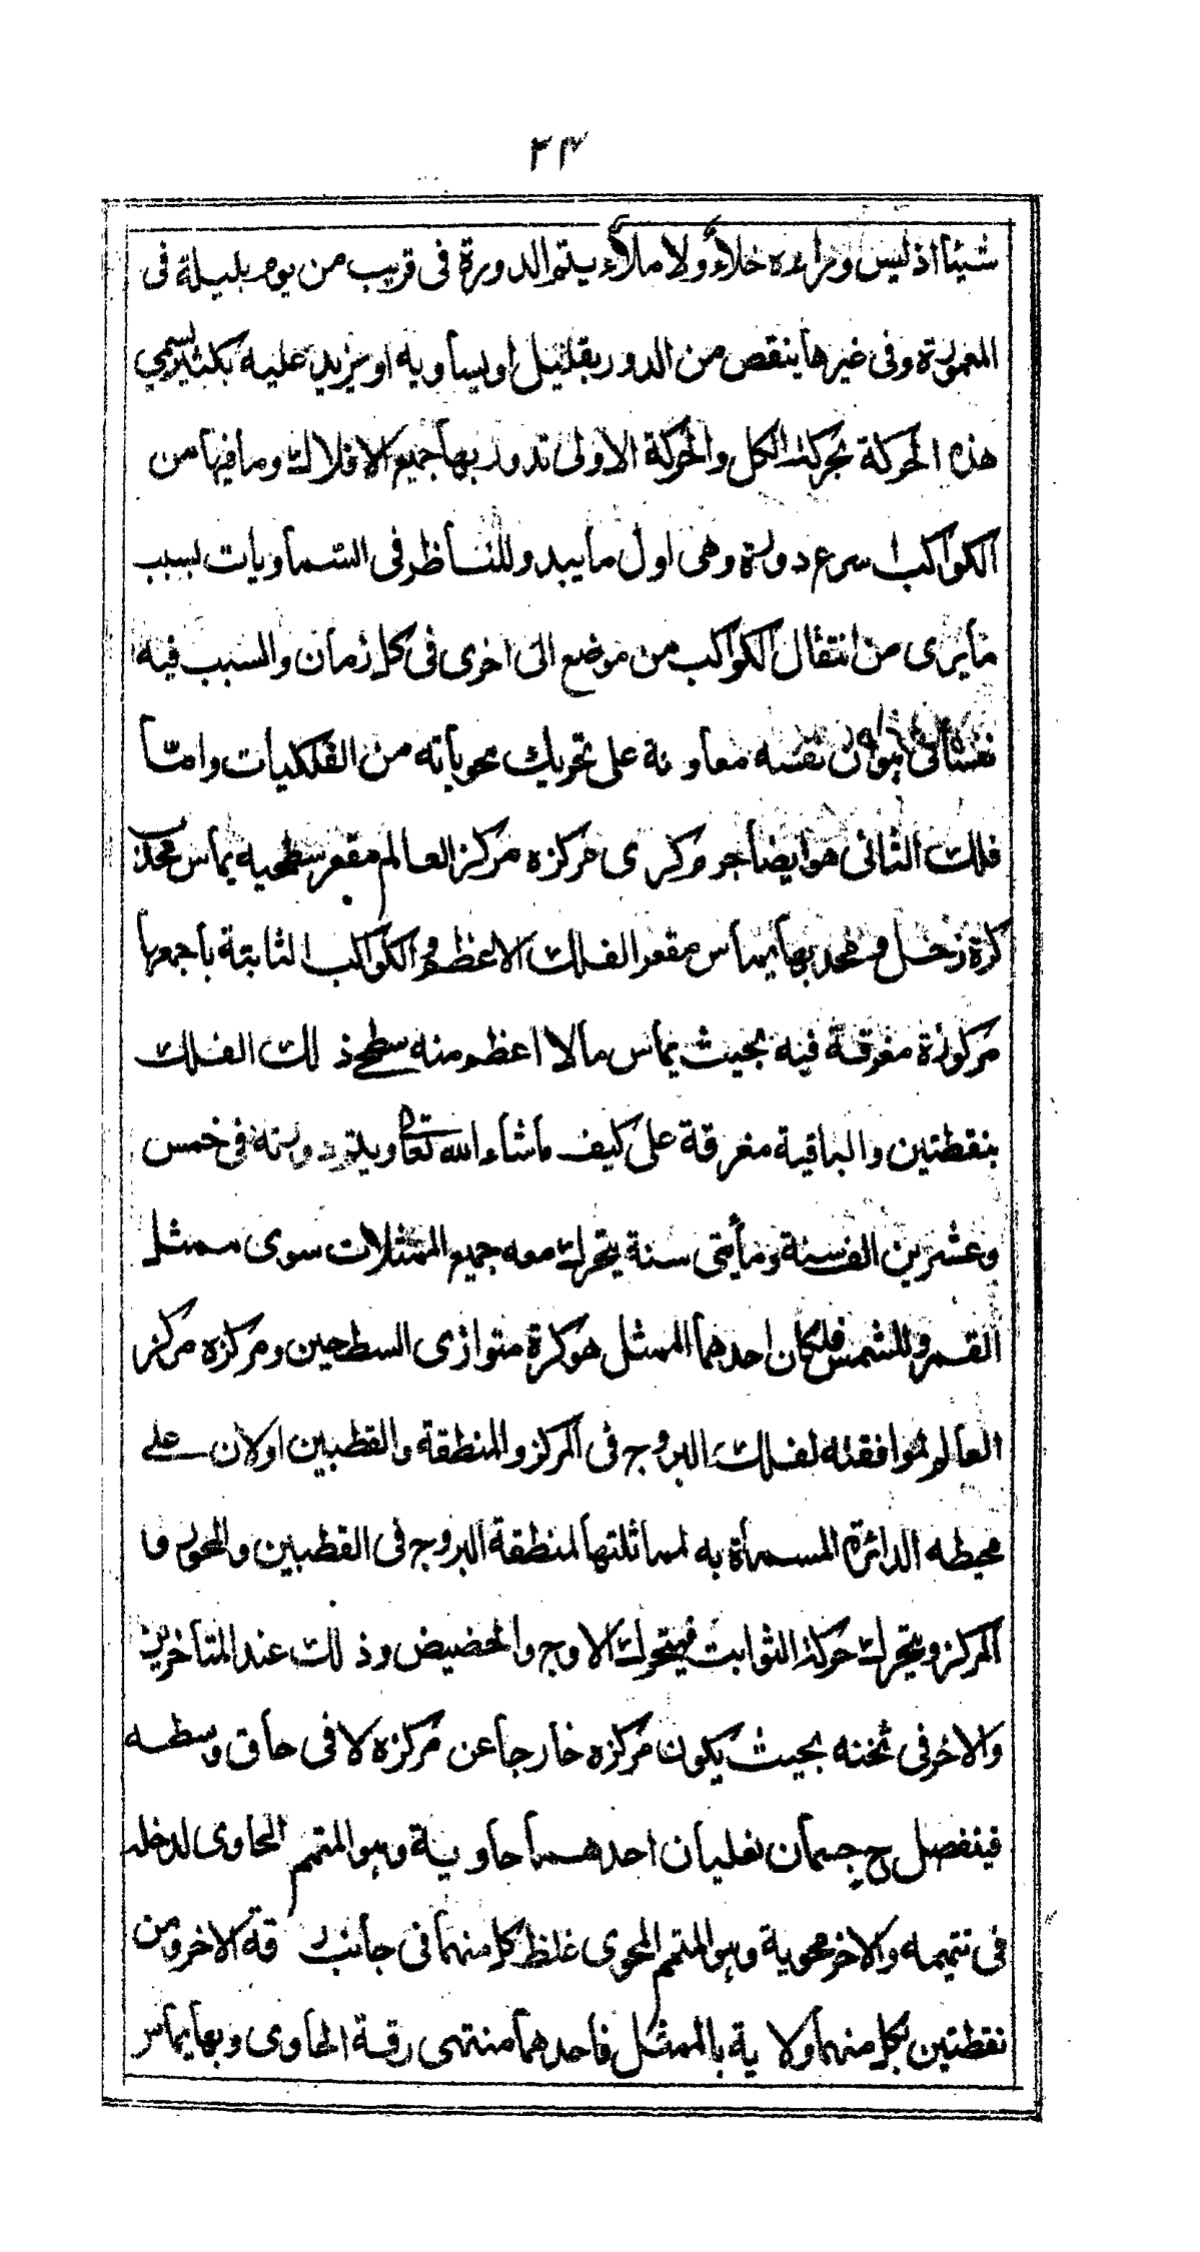 ٢٤
شيئا اذ ليس وراءه خلاء ولا ملاء يتم الدورة فى قريب من يوم بليلة فى
المعمورة وفى غيرها ينقص من الدور بقليل او يساويه او يزيد عليه بكثير يسمى
هذه الحركة بحركة الكل والحركة الاولى تدور بها جميع الافلاك وما فيها من
الكواكب اسرع دورة وهى اول ما يبدو للناظر فى السماويات بسبب
ما يرى من انتقال الكواكب من موضع الى اخرى فى كل زمان والسبب فيه
نفسه معاونة على تحريك محوياته من الفلكيات واما
فلك الثانى هو ايضا جرم كرى مركزه مركز العالم مقعر سطحيه يماس محدب
كرة زحل ومحدبها يماس مقعر الفلك الاعظم والكواكب الثابتة باجمعها
مركوزة مغرقة فيه بحيث يماس مالا اعظم منه سطحى ذلك الفلك
بنقطتين والباقية مغرقة على كيف ما شاء الله تعالى ويتم دورته فى خمس
وعشرين الف سنة ومأيتى سنة يتحرك معه جميع الممثلات سوى ممثل
القمر وللشمس فلكان احدهما الممثل هو كرة متوازى السطحين ومركزه مركز
العالم لموافقته لفلك البروج فى المركز والمنطقة والقطبين اولان على
محيطه الدائرة المسماة به لمماثلتها لمنطقة البروج فى القطبين والمحور وا
المركز ويتحرك حركة الثوابت فيتحرك الاوج والحضيض وذلك عند المتأخرين
والاخر فى ثخنه بحيث يكون مركزه خارجا عن مركزه لا فى حاق وسطه
فينفصل ح جسمان نعليان احدهما حاوية وهو المتمم الحاوى لدخله
فى تتميمه والاخر محوية وهو المتمم المحوى غلظ كل منهما فى جانب رقة الاخر ومن
نقطتين بكل منهما ولاية بالممثل فاحدهما منتهى رقة الحاوى وبها يماس